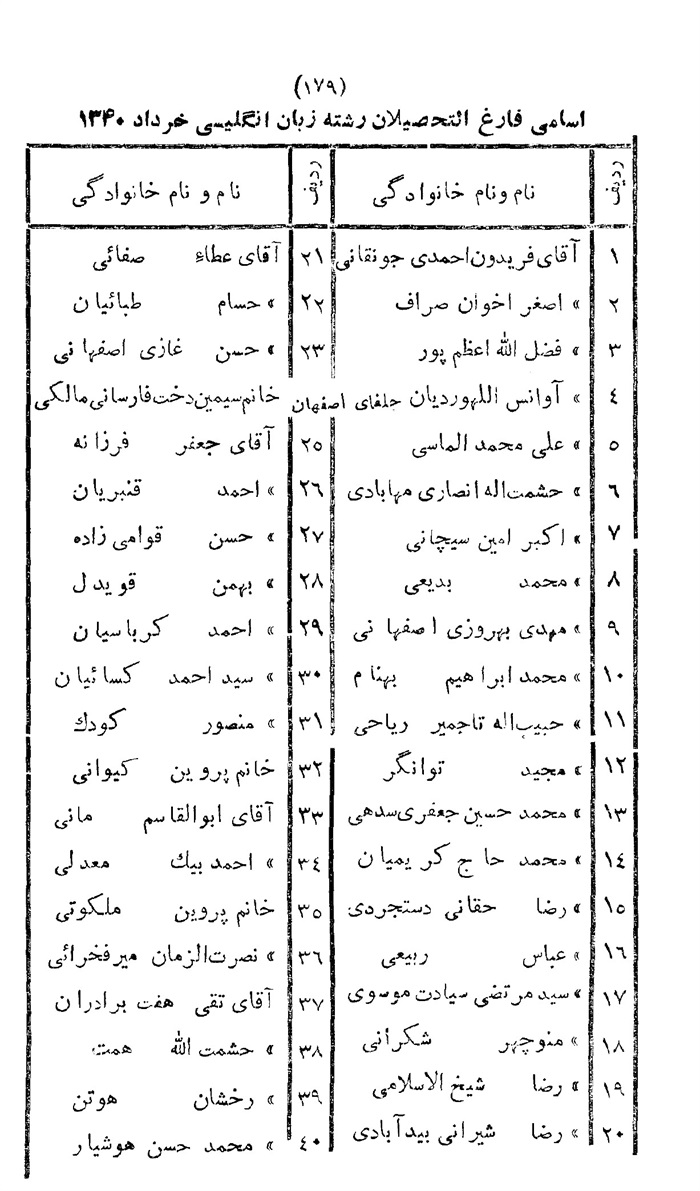 (۱۷۹)
اسامی فارغ التحصیلان رشته زبان انگلیسی خرداد ۱۳۴۰
ردیف نام و نام خانوادگی ردیف نام و نام خانوادگی
۱ آقای فریدون احمدی جونقانی ۲۱ آقای عطاء صفائی
۲ » اصغر اخوان صراف ۲۲ » حسام طبائیان
۳ » فضل الله اعظم پور ۲۳ » حسن غازی اصفهانی
٤ » آوانس اللهوردیان جلفای اصفهان خانم سیمین دخت فارسانی مالکی
٥ » علی محمد الماسی ۲٥ آقای جعفر فرزانه
٦ » حشمت‌اله انصاری مهابادی ۲٦ » احمد قنبریان
۷ » اکبر امین سیچانی ۲۷ » حسن قوامی زاده
۸ » محمد بدیعی ۲۸ » بهمن قویدل
۹ » مهدی بهروزی اصفهانی ۲۹ » احمد کرباسیان
۱۰ » محمد ابراهیم بهنام ۳۰ » سید احمد کسائیان
۱۱ » حبیب‌اله تاجمیر ریاحی ۳۱ » منصور کودك
۱۲ » مجید توانگر ۳۲ خانم پروین کیوانی
۱۳ » محمد حسین جعفری سدهی ۳۳ آقای ابوالقاسم مانی
۱٤ » محمد حاج کریمیان ۳٤ » احمد بیك معدلی
۱٥ » رضا حقانی دستجردی ۳٥ خانم پروین ملکوتی
۱٦ » عباس ربیعی ۳٦ » نصرت‌الزمان میرفخرائی
۱۷ » سید مرتضی سیادت موسوی ۳۷ آقای تقی هفت برادران
۱۸ » منوچهر شکرانی ۳۸ » حشمت الله همت
۱۹ » رضا شیخ الاسلامی ۳۹ » رخشان هوتن
۲۰ » رضا شیرانی بیدآبادی ٤۰ » محمد حسن هوشیار